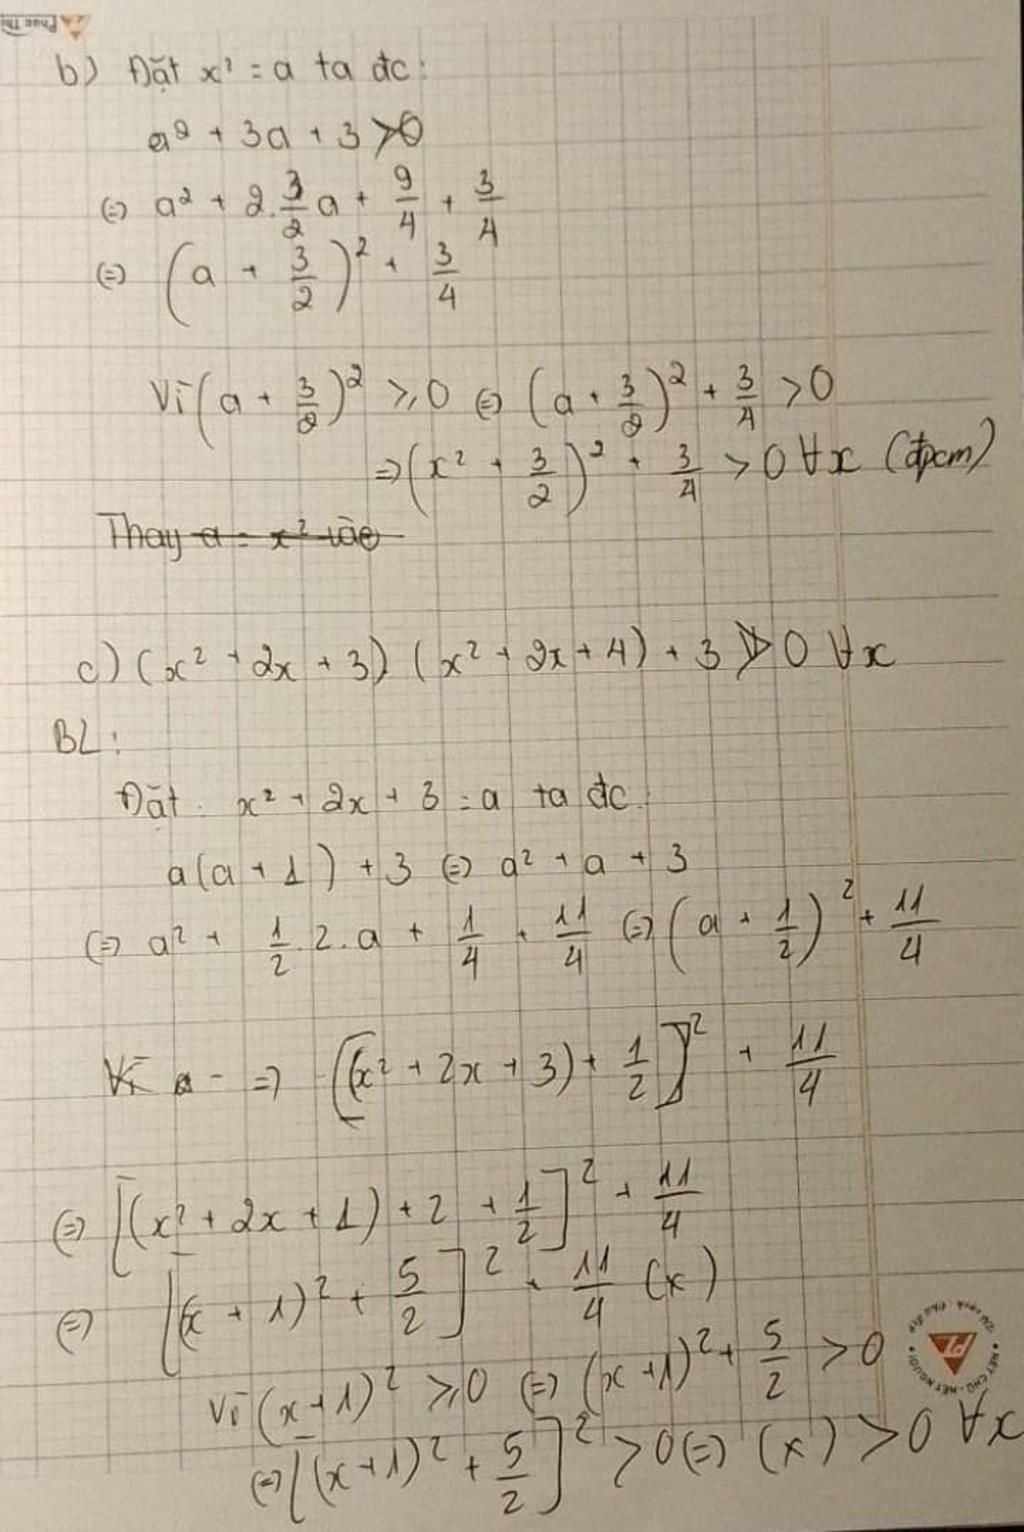 b) Đặt x² = a ta đc:
a² + 3a + 3 > 0
(=) a² + 2.3/2 a + 9/4 + 3/4
(=) (a + 3/2)² + 3/4
Vì (a + 3/2)² ≥ 0 (=) (a + 3/2)² + 3/4 > 0
=> (x² + 3/2)² + 3/4 > 0 ∀x (đpcm)
Thay a = x² vào
c) (x² + 2x + 3) (x² + 2x + 4) + 3 > 0 ∀x
BL:
Đặt: x² + 2x + 3 = a ta đc:
a(a + 1) + 3 (=) a² + a + 3
(=) a² + 1/2 . 2 . a + 1/4 + 11/4 (=) (a + 1/2)² + 11/4
Vì a - => [(x² + 2x + 3) + 1/2]² + 11/4
(=) [(x² + 2x + 1) + 2 + 1/2]² + 11/4
(=) [(x + 1)² + 5/2]² + 11/4 (x)
Vì (x + 1)² ≥ 0 (=) (x + 1)² + 5/2 > 0
(=) [(x + 1)² + 5/2]² > 0 (=) (x) > 0 ∀x
NÉT CHỮ - NẾT NGƯỜI